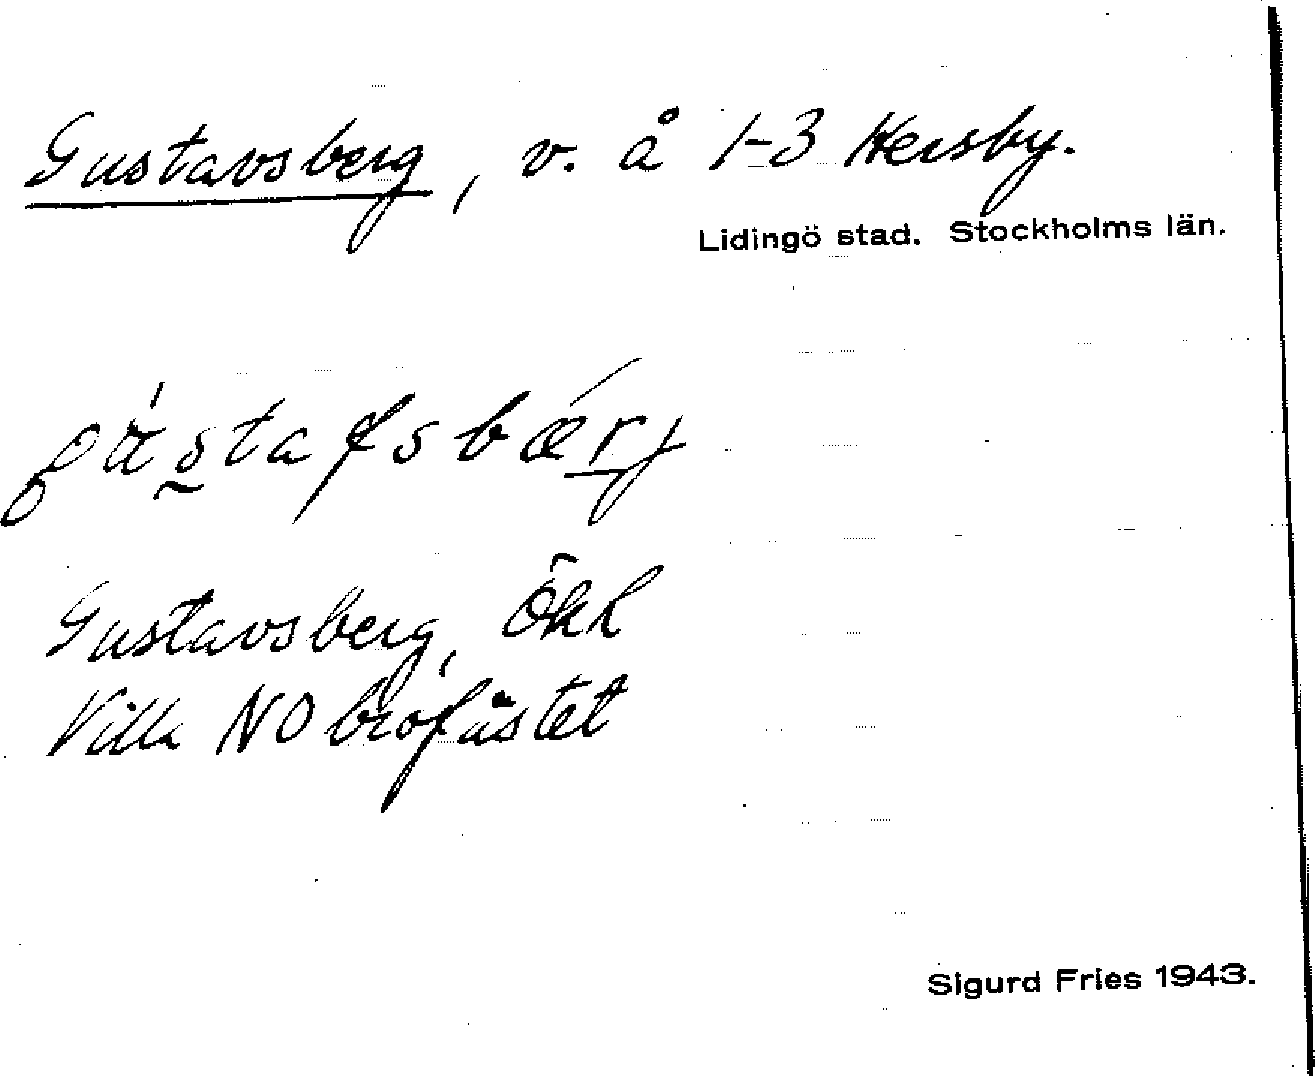 Gustavsberg, v. å 1-3 Hersby.
Lidingö stad. Stockholms län.
Gustavsberg, Ökl
Villa NO brofästet
Sigurd Fries 1943.